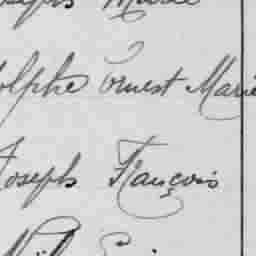 Joseph Marie
olphe Ernest Marie
Joseph François